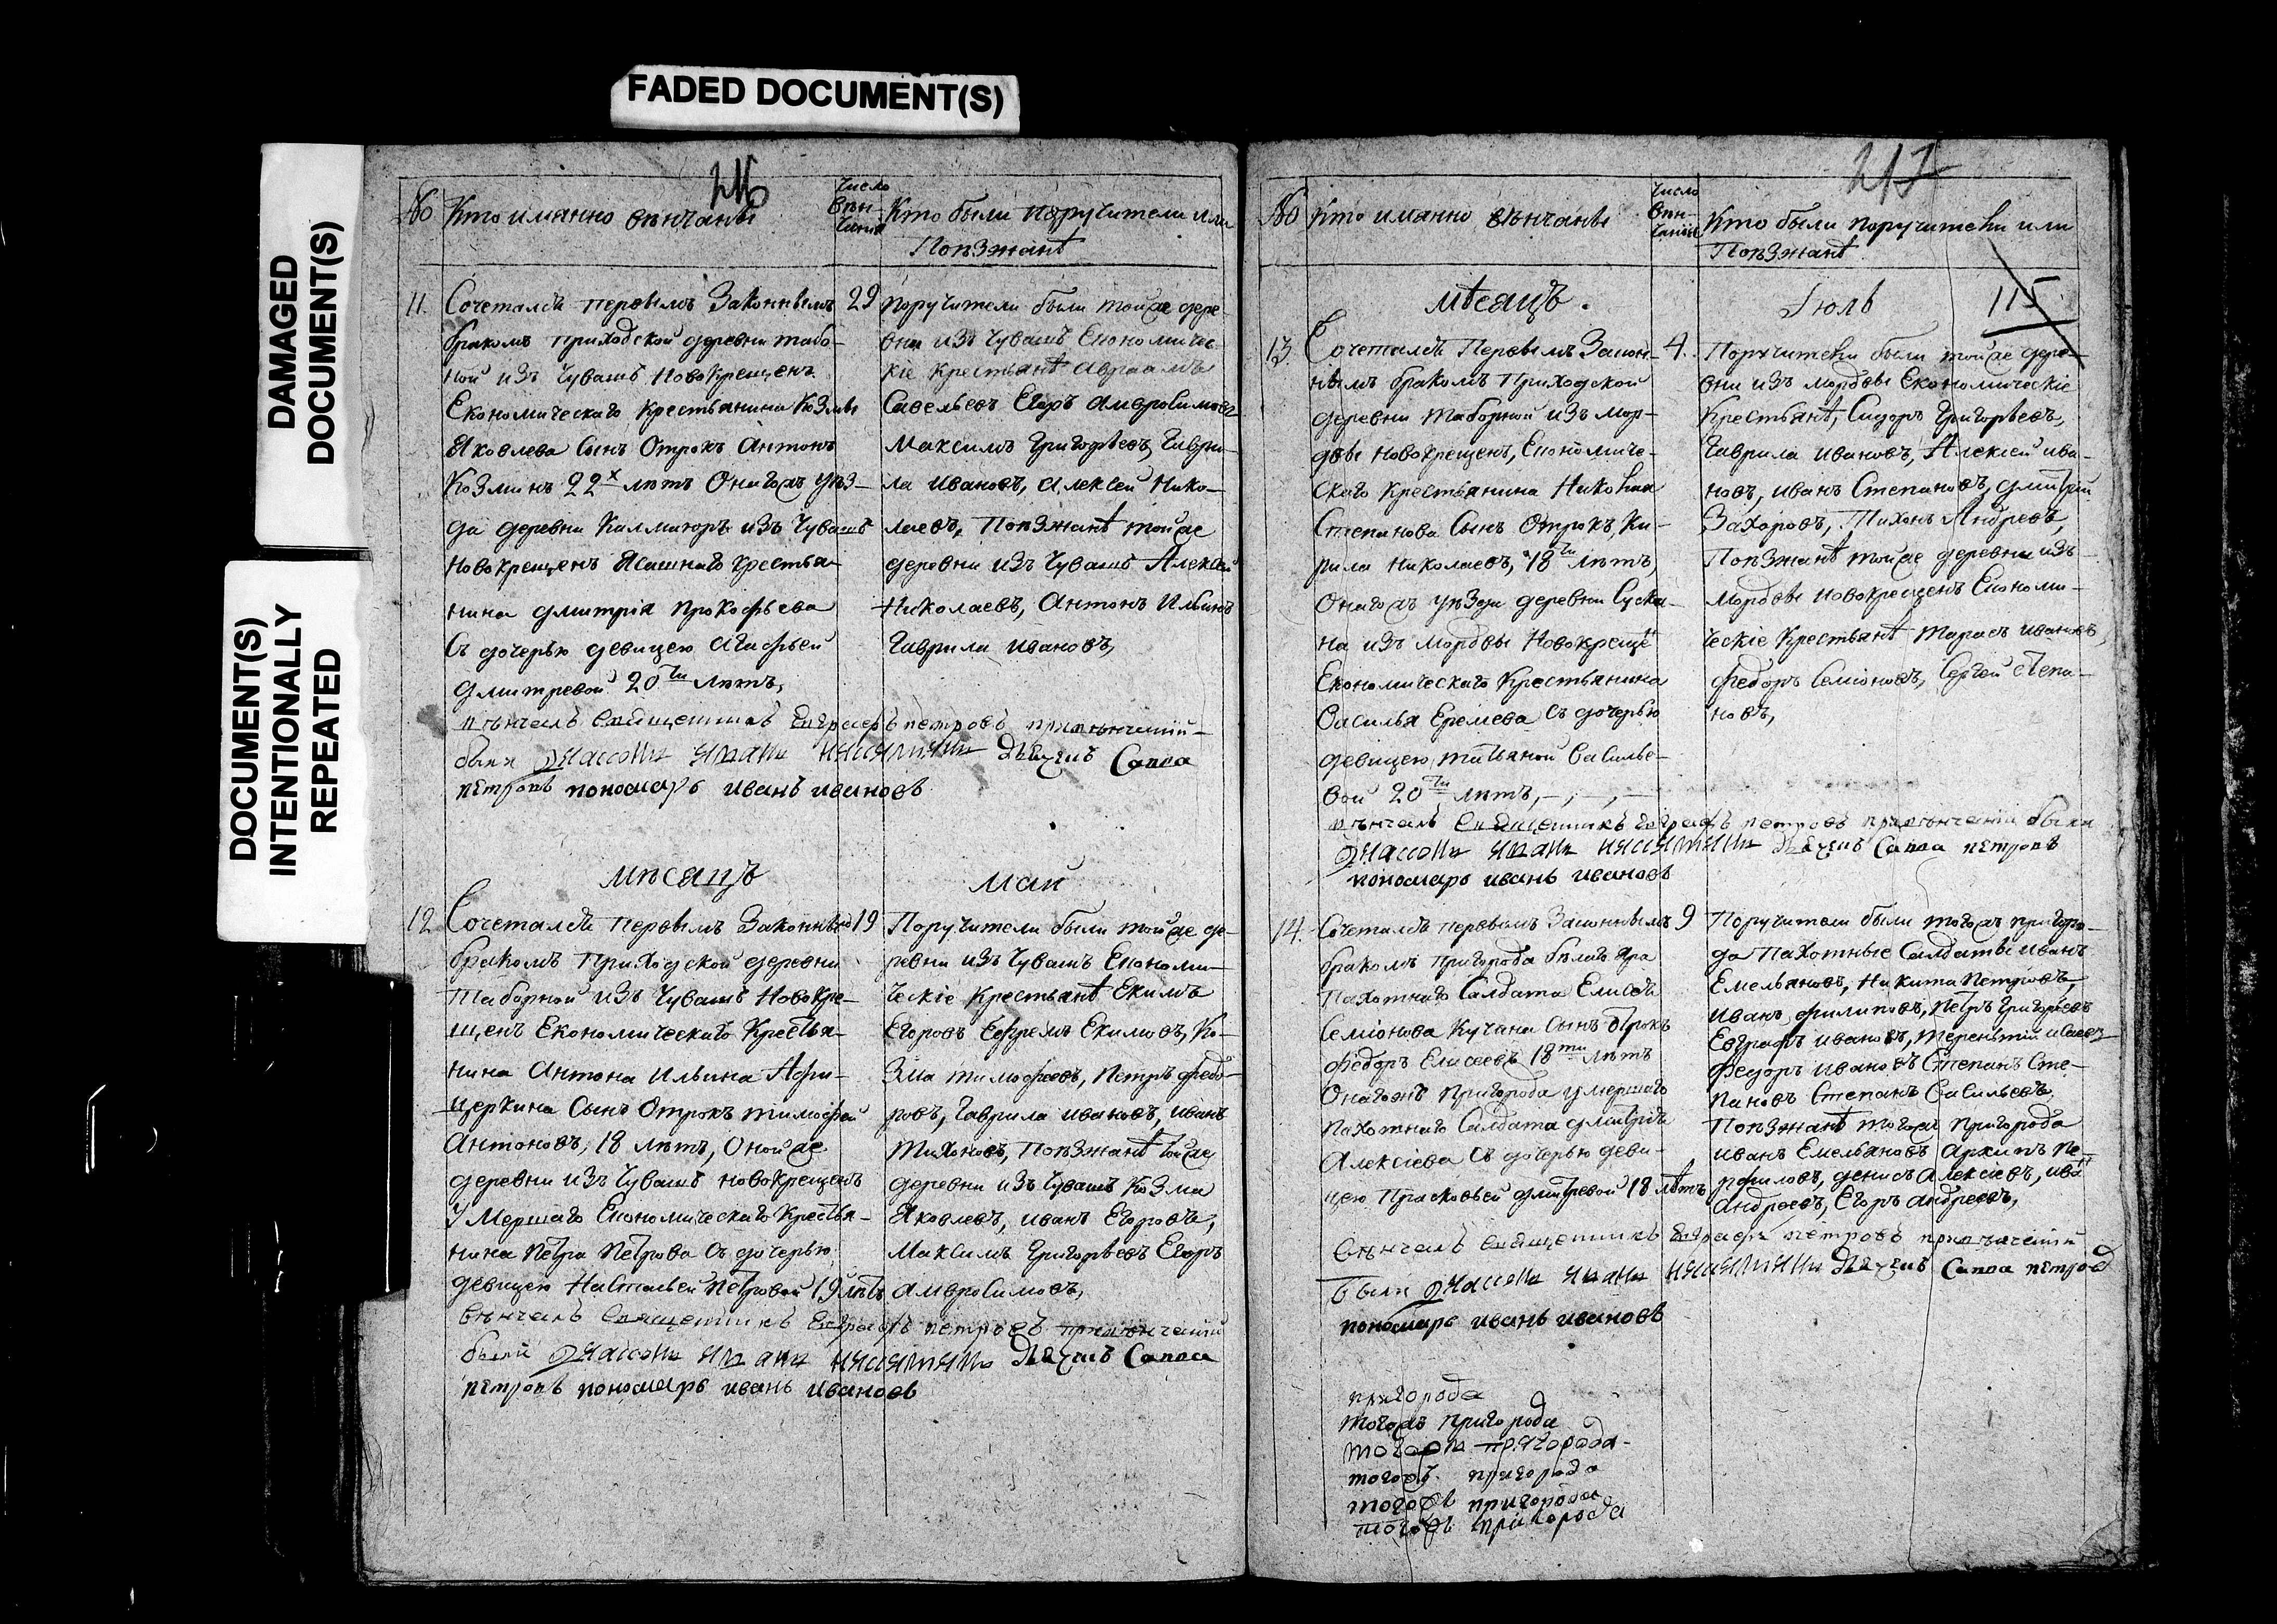 FADED DOCUMENT(S)
DAMAGED
DOCUMENT(S)
DOCUMENT(S)
INTENTIONALLY
REPEATED
216
№ Кто иманно вѣнчаны
Число
вѣн-
чания
Кто были поручители или
Поѣзжанѣ
11. Сочетался первымъ Законнымъ
бракомъ приходской деревни табо-
ной изъ Чувашъ Новокрещенъ
Економическаго Крестьянина Козмы
Яковлева Сынъ Отрокъ Антонъ
Козминъ 22х лѣтъ Онагожъ уѣз-
да деревни Калмаюръ изъ Чувашъ
Новокрещенъ Ясашнаго крестья-
нина Дмитрія Прокофьева
Съ дочерью девицею Агафьей
Дмитревой 20ти лѣтъ,
29
поручители были тойже дере
вни изъ Чувашъ Економиче-
скіе Крестьянѣ Авраамъ
Савельевъ Егоръ Амвросимовъ
Максимъ Григорьевъ, Гаври-
ла Ивановъ, Алексей Нико-
лаевъ, Поѣзжанѣ тойже
деревни изъ Чувашъ Алексей
Николаевъ, Антонъ Ильинъ
Гаврила Ивановъ,
вѣнчалъ Священникъ Евграфъ петровъ привѣнчаніи
были Дьячекъ Савва
петровъ пономарь иванъ ивановъ
мѣсацъ май
12. Сочетался первымъ Законнымъ
бракомъ Приходской деревни
Таборной изъ Чувашъ Новокре-
щенъ Економическаго Крестья-
нина Антона Ильина Афи-
церкина Сынъ Отрокъ Тимофей
Антоновъ, 18 лѣтъ, Онойже
деревни изъ Чувашъ новокрещенъ
Умершаго Економическаго Крестья-
нина Петра Петрова Съ дочерью
девицею Настасьей Петровой 19 лѣтъ
19
Поручители были тойже де-
ревни изъ Чувашъ Економи-
ческіе Крестьянѣ Екимъ
Егоровъ Ефремъ Екимовъ, Ко-
зма Тимофеевъ, Петръ Федо-
ровъ, Гаврила Ивановъ, Иванъ
Тихоновъ, Поѣзжанѣ тойже
деревни изъ Чувашъ Козма
Яковлевъ, Иванъ Егоровъ,
Максимъ Григорьевъ Егоръ
Амвросимовъ,
Вѣнчалъ Священникъ Евграфъ петровъ привѣнчаніи
были Дьячекъ Савва
петровъ пономарь иванъ ивановъ
217
№ Кто иманно вѣнчаны
Число
вѣн-
чания
Кто были поручители или
Поѣзжанѣ
115
мѣсацъ. Іюль
13. Сочетался Первымъ Закон-
нымъ бракомъ Приходской
деревни Таборной изъ мор-
двы Новокрещенъ, Економиче-
скаго Крестьянина Николая
Степанова Сынъ Отрокъ, Ки-
рила Николаевъ, 18ти лѣтъ,
Онагожъ уѣзда деревни Суска-
на изъ мордвы Новокреще
Економическаго Крестьянина
Василья Еремева Съ дочерью
девицею, татьяной Василье-
вой 20ти лѣтъ,
4.
Поручители были тойже дере-
вни изъ мордвы Економическіе
Крестьянѣ, Сидоръ Григорьевъ,
Гаврила Ивановъ, Алексей ива-
новъ, иванъ Степановъ, дмитрий
Захаровъ, Тихонъ Андреевъ,
Поѣзжанѣ тойже деревни изъ
Мордвы новокрещенъ Економи-
ческіе Крестьянѣ Тарасъ ивановъ,
Федоръ Семіоновъ, Сергей степа-
новъ,
вѣнчалъ Священникъ Евграфъ петровъ привѣнчаніи были
Дьячекъ Савва петровъ
пономарь иванъ ивановъ
14. Сочетался первымъ Законнымъ
бракомъ пригорода бѣлаго Яра
Пахотнаго Салдата Елисея
Семіонова Кучина Сынъ отрокъ
Федоръ Елисеевъ 18ти лѣтъ
Онагожъ Пригорода умершаго
пахотнаго Салдата дмитрія
Алексіева Съ дочерью деви-
цею Прасковьей дмитревой 18 лѣтъ
9
Поручители были тогожъ пригоро-
да Пахотные Салдаты Иванъ
Емельяновъ, Никита Петровъ,
Иванъ филиповъ, Петръ Григорьевъ
Евграфъ ивановъ, Терентий исаевъ
Федоръ ивановъ Степанъ Сте-
пановъ Степанъ Васильевъ
Поѣзжанѣ тогожъ Пригорода
иванъ Емельяновъ Архипъ Пе-
рфиловъ, денисъ Алексіевъ, ива
Андреевъ, Егоръ Андреевъ,
Вѣнчалъ Священникъ Евграфъ петровъ привѣнчаніи
были Дьячекъ Савва петров
пономарь иванъ ивановъ
пригорода
тогожъ пригорода
тогожъ пригорода
тогожъ пригорода
тогожъ пригорода
тогожъ пригорода